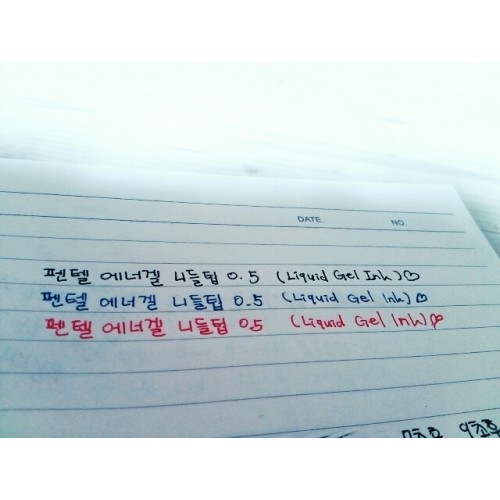 DATE. NO.
펜텔 에너겔 니들팁 0.5 (Liquid Gel Ink)♡
펜텔 에너겔 니들팁 0.5 (Liquid Gel Ink)♡
펜텔 에너겔 니들팁 0.5 (Liquid Gel Ink)♡